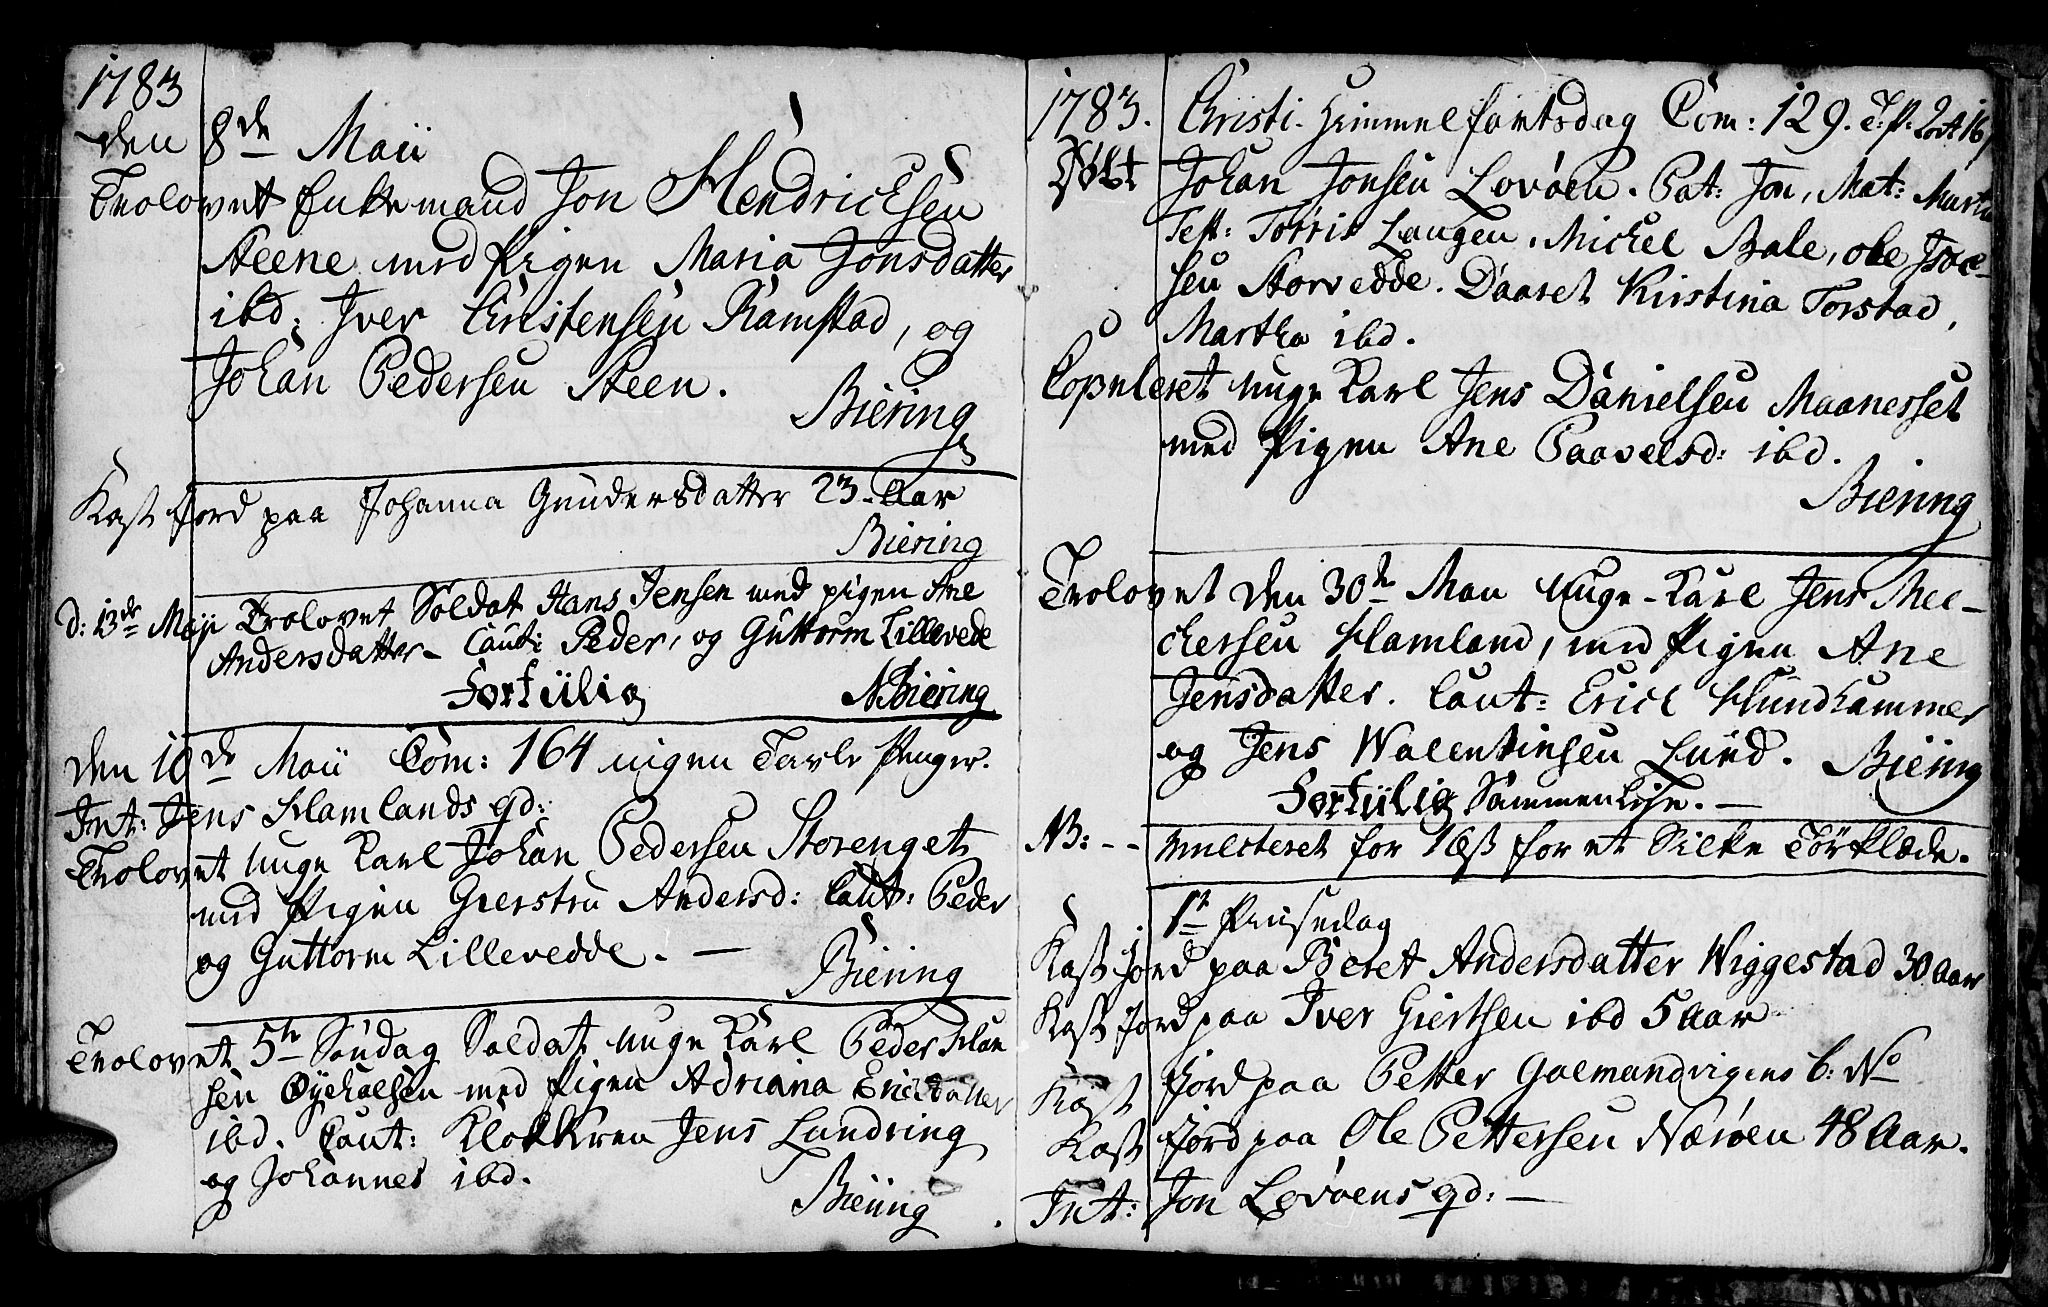 1783
den 8de Maii
Trolovet Enkemand Jon Hendrichsen
Steene med Pigen Maria Jonsdatter
ibd: Iver Christensen Ramstad, og
Johan Pedersen Steen.
Biering
Kast Jord paa Johanna Gundersdatter 23. Aar
Biering
d: 13de Maji Trolovet Soldat Hans Jensen med pigen Ane
Andersdatter- Caut: Peder, og Guttorm Lillevede
N Biering
den 10de Maii Com: 164 ingen Tavle Penger.
Int: Jens Hamlands qd:
Trolovet unge Karl Johan Pedersen Storenget
med Pigen Gierstru Andersd: Caut: Peder
og Guttorm Lillevedde. —
Biering
Trolovet 5te Søndag Soldat unge Karl Peder Klau
sen Øyeholsen med Pigen Adriana Ericsdatter
ibd. Caut: Klokkren Jens Lundring
og Johannes ibd.
Biering
1783. Christi Himmelfartsdag Com: 129. T: P: 2 ort 16
Døbt Johan Jonsen Lovøen. Pat: Jon, Mat: Martha
Test: Torris Langen, Michel Bale, ole Isac-
sen Storvedde. Daaret Kirstina Torstad,
Martha ibd.
Copuleret unge Karl Jens Danielsen Maanesset
med Pigen Ane Paavelsd: ibd.
Biering
Trolovet den 30te Maii Unge-Karl Jens Mic-
chelsen Hamland, med Pigen Ane
Jensdatter. Caut: Erich Hundhammer
og Jens Walentinsen Lund. Biering
Sammenlise. —
NB: - - mulcteret for for et Silke Tørklæde.
1te Pinsedag
Kast Jord paa Beret Andersdatter Wiggestad 30 Aar
Kast Jord paa Iver Giertsen ibd 5 Aar
Kast Jord paa Petter Golmandvigens b: No
Kast Jord paa Ole Pettersen Nærøen 48 Aar.
Int: Jon Lovøens qd: —